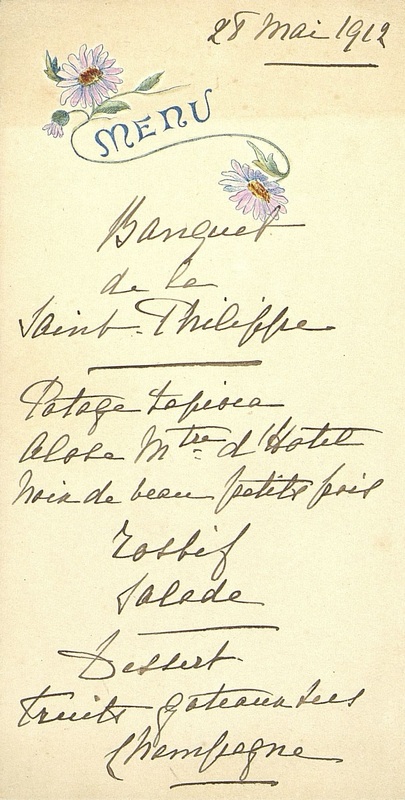 28 Mai 1912
MENU
Banquet
de la
Saint-Philippe
Potage tapioca
Alose Mtre d'Hotel
Noix de veau petits pois
Rosbif
Salade
Dessert
Fruits gateaux secs
Champagne